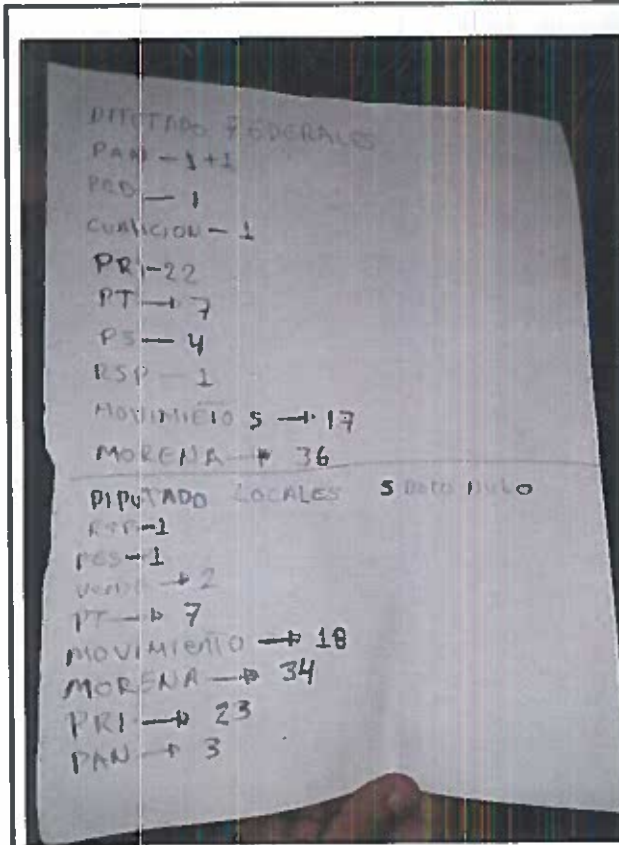 DITUTADO FEDERALES
PAN - 1+1
PRD — 1
CUALICION - 1
PRI-22
PT → 7
PS — 4
RSP — 1
MOVIMIETO 5 → 17
MORENA → 36
DIPUTADO LOCALES 5 Boto Nulo
RSP-1
PES-1
VERDE → 2
PT → 7
MOVIMIENTO → 18
MORENA → 34
PRI → 23
PAN → 3